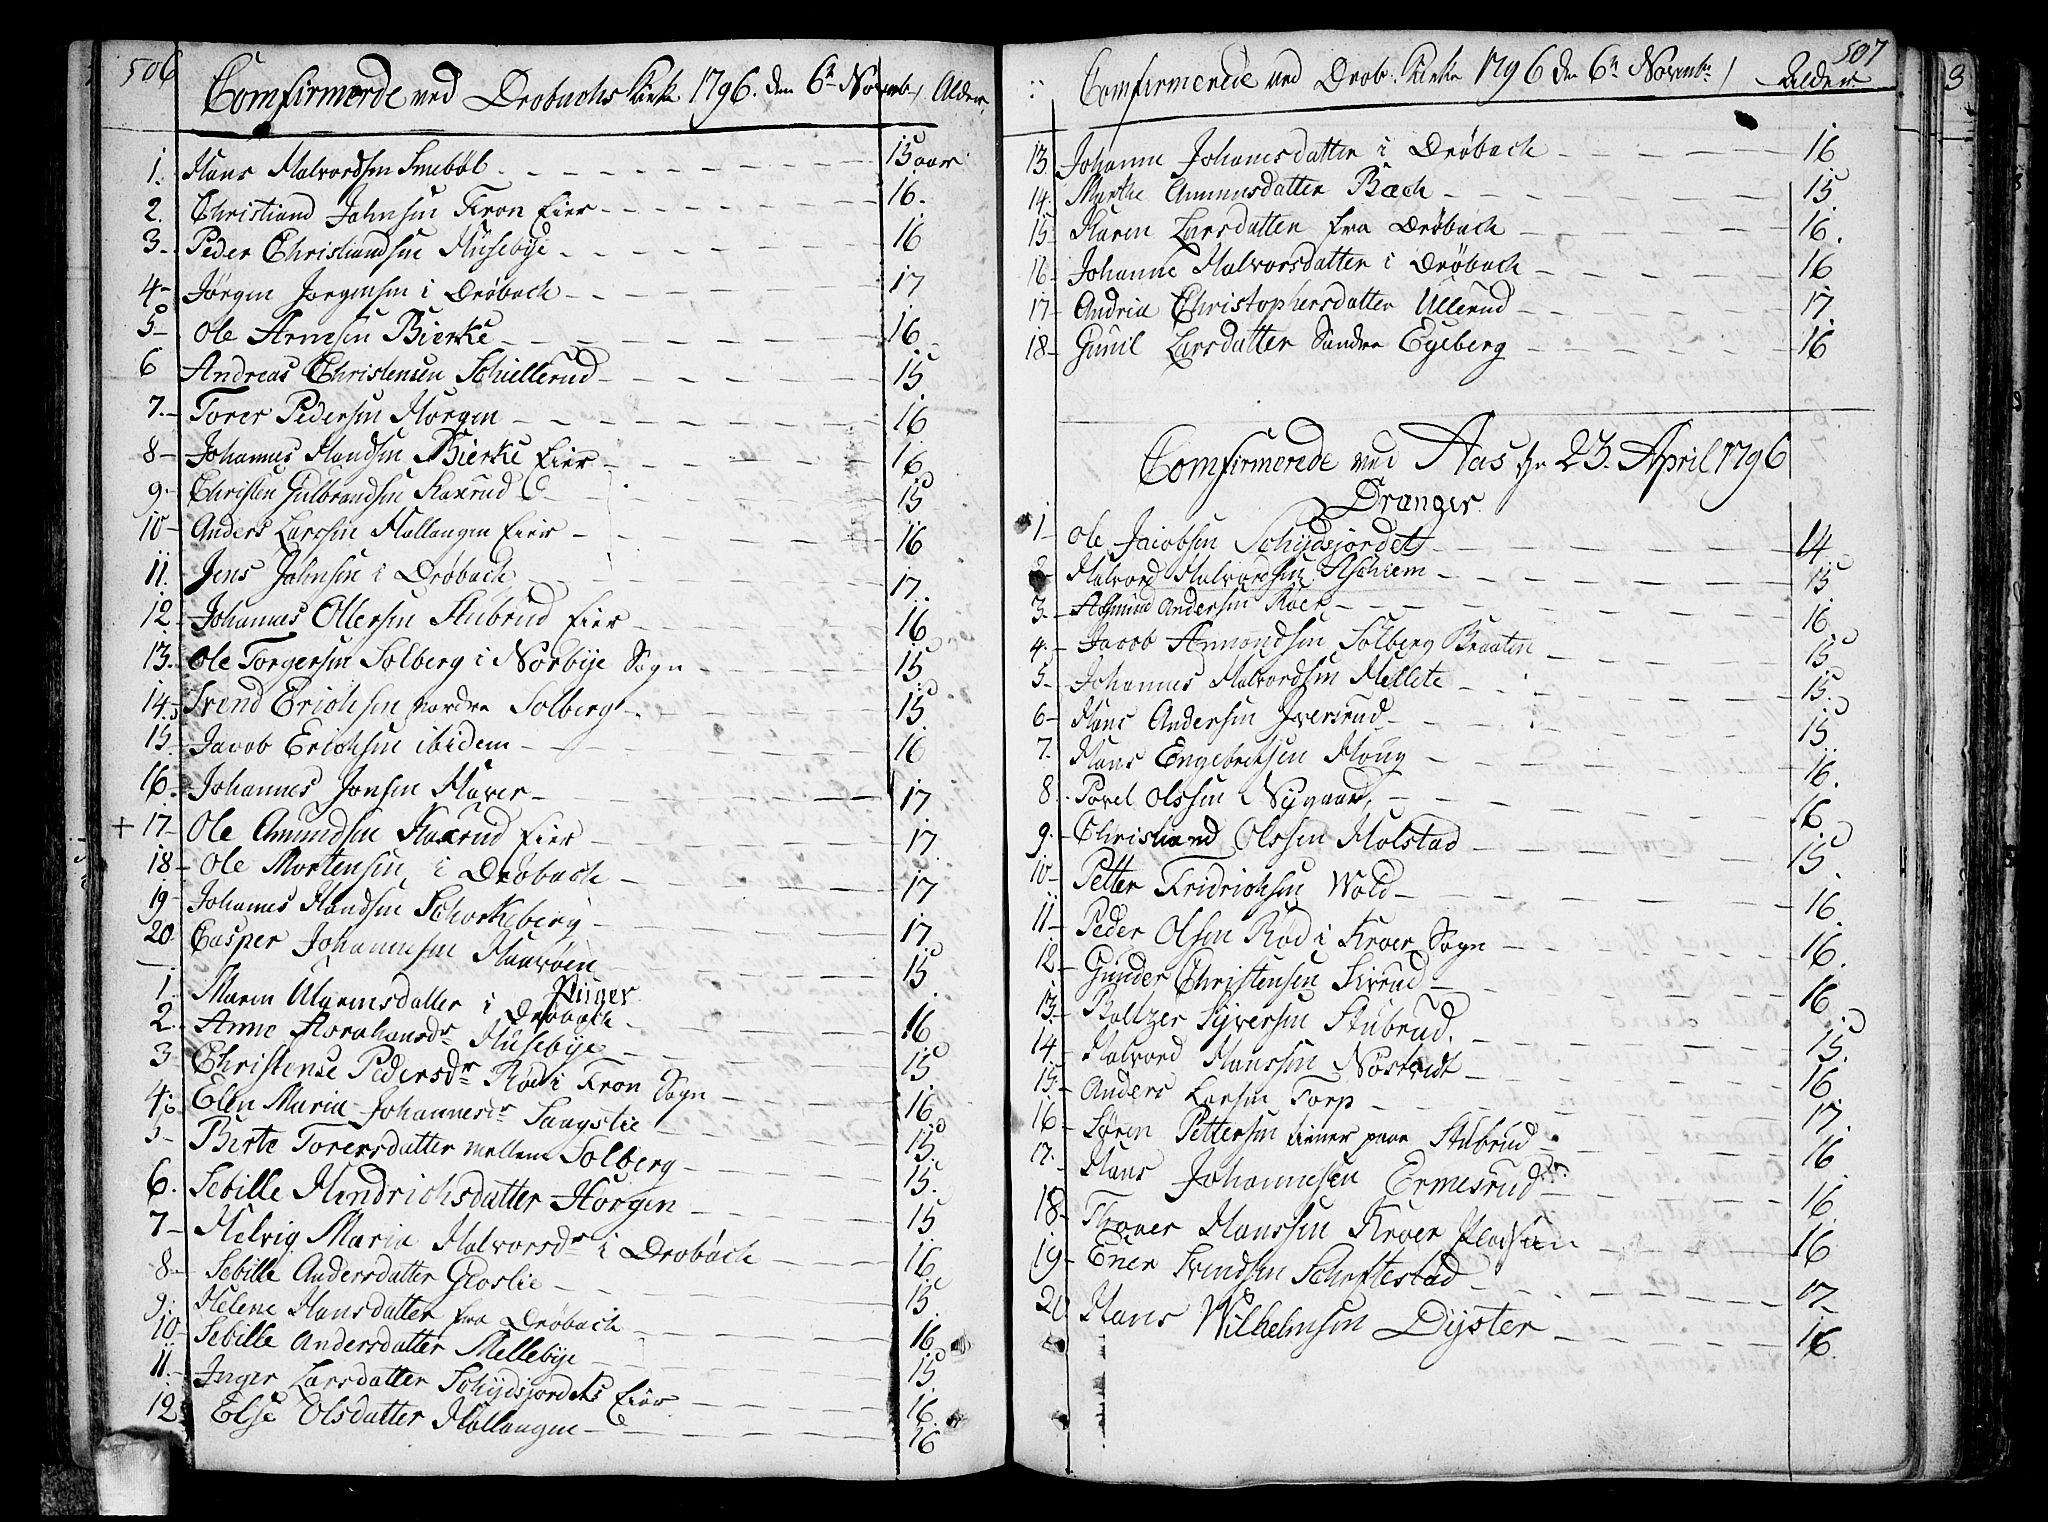 506
Comfirmerde ved Drøbachs Kirke 1796. den 6te Novemb: Alder.
1. Hans Halvordsen Snebøl 15 aar
2. Christiand Johnsen Fron Eier 16.
3. Peder Christiandsen Husebye 16
4 Jørgen Jørgensen i Drøbach 17
5 Ole Arnesen Bierke 16
6 Andreas Christensen Schiellerud 15
7. Torer Pedersen Horgen 16
8 Johannes Handsen Bierke Eier 16
9. Christen Gulbrandsen Kaxrud E 15
10 Anders Larssen Hallangen Eier 16
11. Jens Johnsen i Drøbach 17.
12 Johannes Ollersen Stubrud Eier 16
13. Ole Torgersen Solberg i Norbye Sogn 15
14. Svend Erichsen nordre Solberg 15
15. Jacob Erichsen ibidem 16
16. Johannes Jonsen Haver 17
+ 17 Ole Amundsen Kaxrud Eier 17
18 Ole Mortensen i Drøbach 17
19 Johannes Handsen Schorkeberg 17
20 Casper Johannesen Haavøen 15
Piger
1. Maren Maremsdatter i Drøbach 16
2. Anne Abrahamsdr Husebye 15
3 Christense Pedersdr Rød i Fron Sogn 16
4. Elen Maria Johannesdr Sangstie 15
5 Birte Torersdatter mellem Solberg 15.
6. Sebille Hendrichsdatter Horgen 15
7 Helvig Maria Halvorsdr i Drøbach 16
8 Sebille Andersdatter Gloslie 15
9. Helene Hansdatter fra Drøbach 16
10 Sebille Andersdatter Mellebye 15
11. Inger Larsdatter Schydsjordets Eier 16.
12 Else Olsdatter Hallangen E 16
507
Comfirmerede ved Drøb: Kirke 1796 den 6te Novemb: Alder
13. Johanne Johanesdatter i Drøbach 16
14. Marthe Ammunsdatter Bæch 15.
15 Karen Larsdatter fra Drøbach 16.
16 Johanne Halvorsdatter i Drøbach 16
17 Andrea Christophersdatter Ullerud 17.
18 Gunil Larsdatter Søndre Egeberg 16
Comfirmerede ved Aas Kr 23. April 1796
Drænger
1 Ole Jacobsen Schydsjordet 14
2 Halvord Halvordsen Aschiem 15
3. Asmund Andersen Roer 16.
4. Jacob Amondsen Solberg Braaten 15
5 Johannes Halvordsen Mellete 15.
6 Hans Andersen Iversrud 15
7. Hans Engebretsen Houg 16.
8. Povel Olssen Nygaard 16
9. Christiand Olssen Holstad 15
10 Petter Fridrichsen Wold 16.
11 Peder Olsen Rød i Kroer Sogn 16.
12 Gunder Christensen Sivrud 16
13. Baltzer Syversen Stubrud. 15.
14. Halvord Hanssen Nøstvedt 16
15. Anders Larsen Torp 17.
16 Søren Pettersen tiener paa Stubrud 16
17. Hans Johannesen Ermesrud 16.
18 Thover Hanssen Kroer Pladsen 16
19 Ener Svendsen Scheftestad 17
20 Hans Wilhelmsen Dyster 16